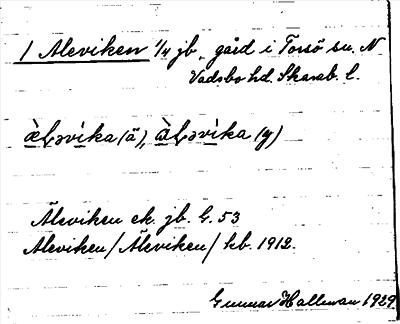 1 Aleviken 1/4 jb. gård i Torsö sn. N
Vadsbo hd. Skarab. l.
(ä), (y)
Äleviken ek. jb. G. 53
Aleviken/Äleviken/hb. 1912.
Gunnar Hallman 1929